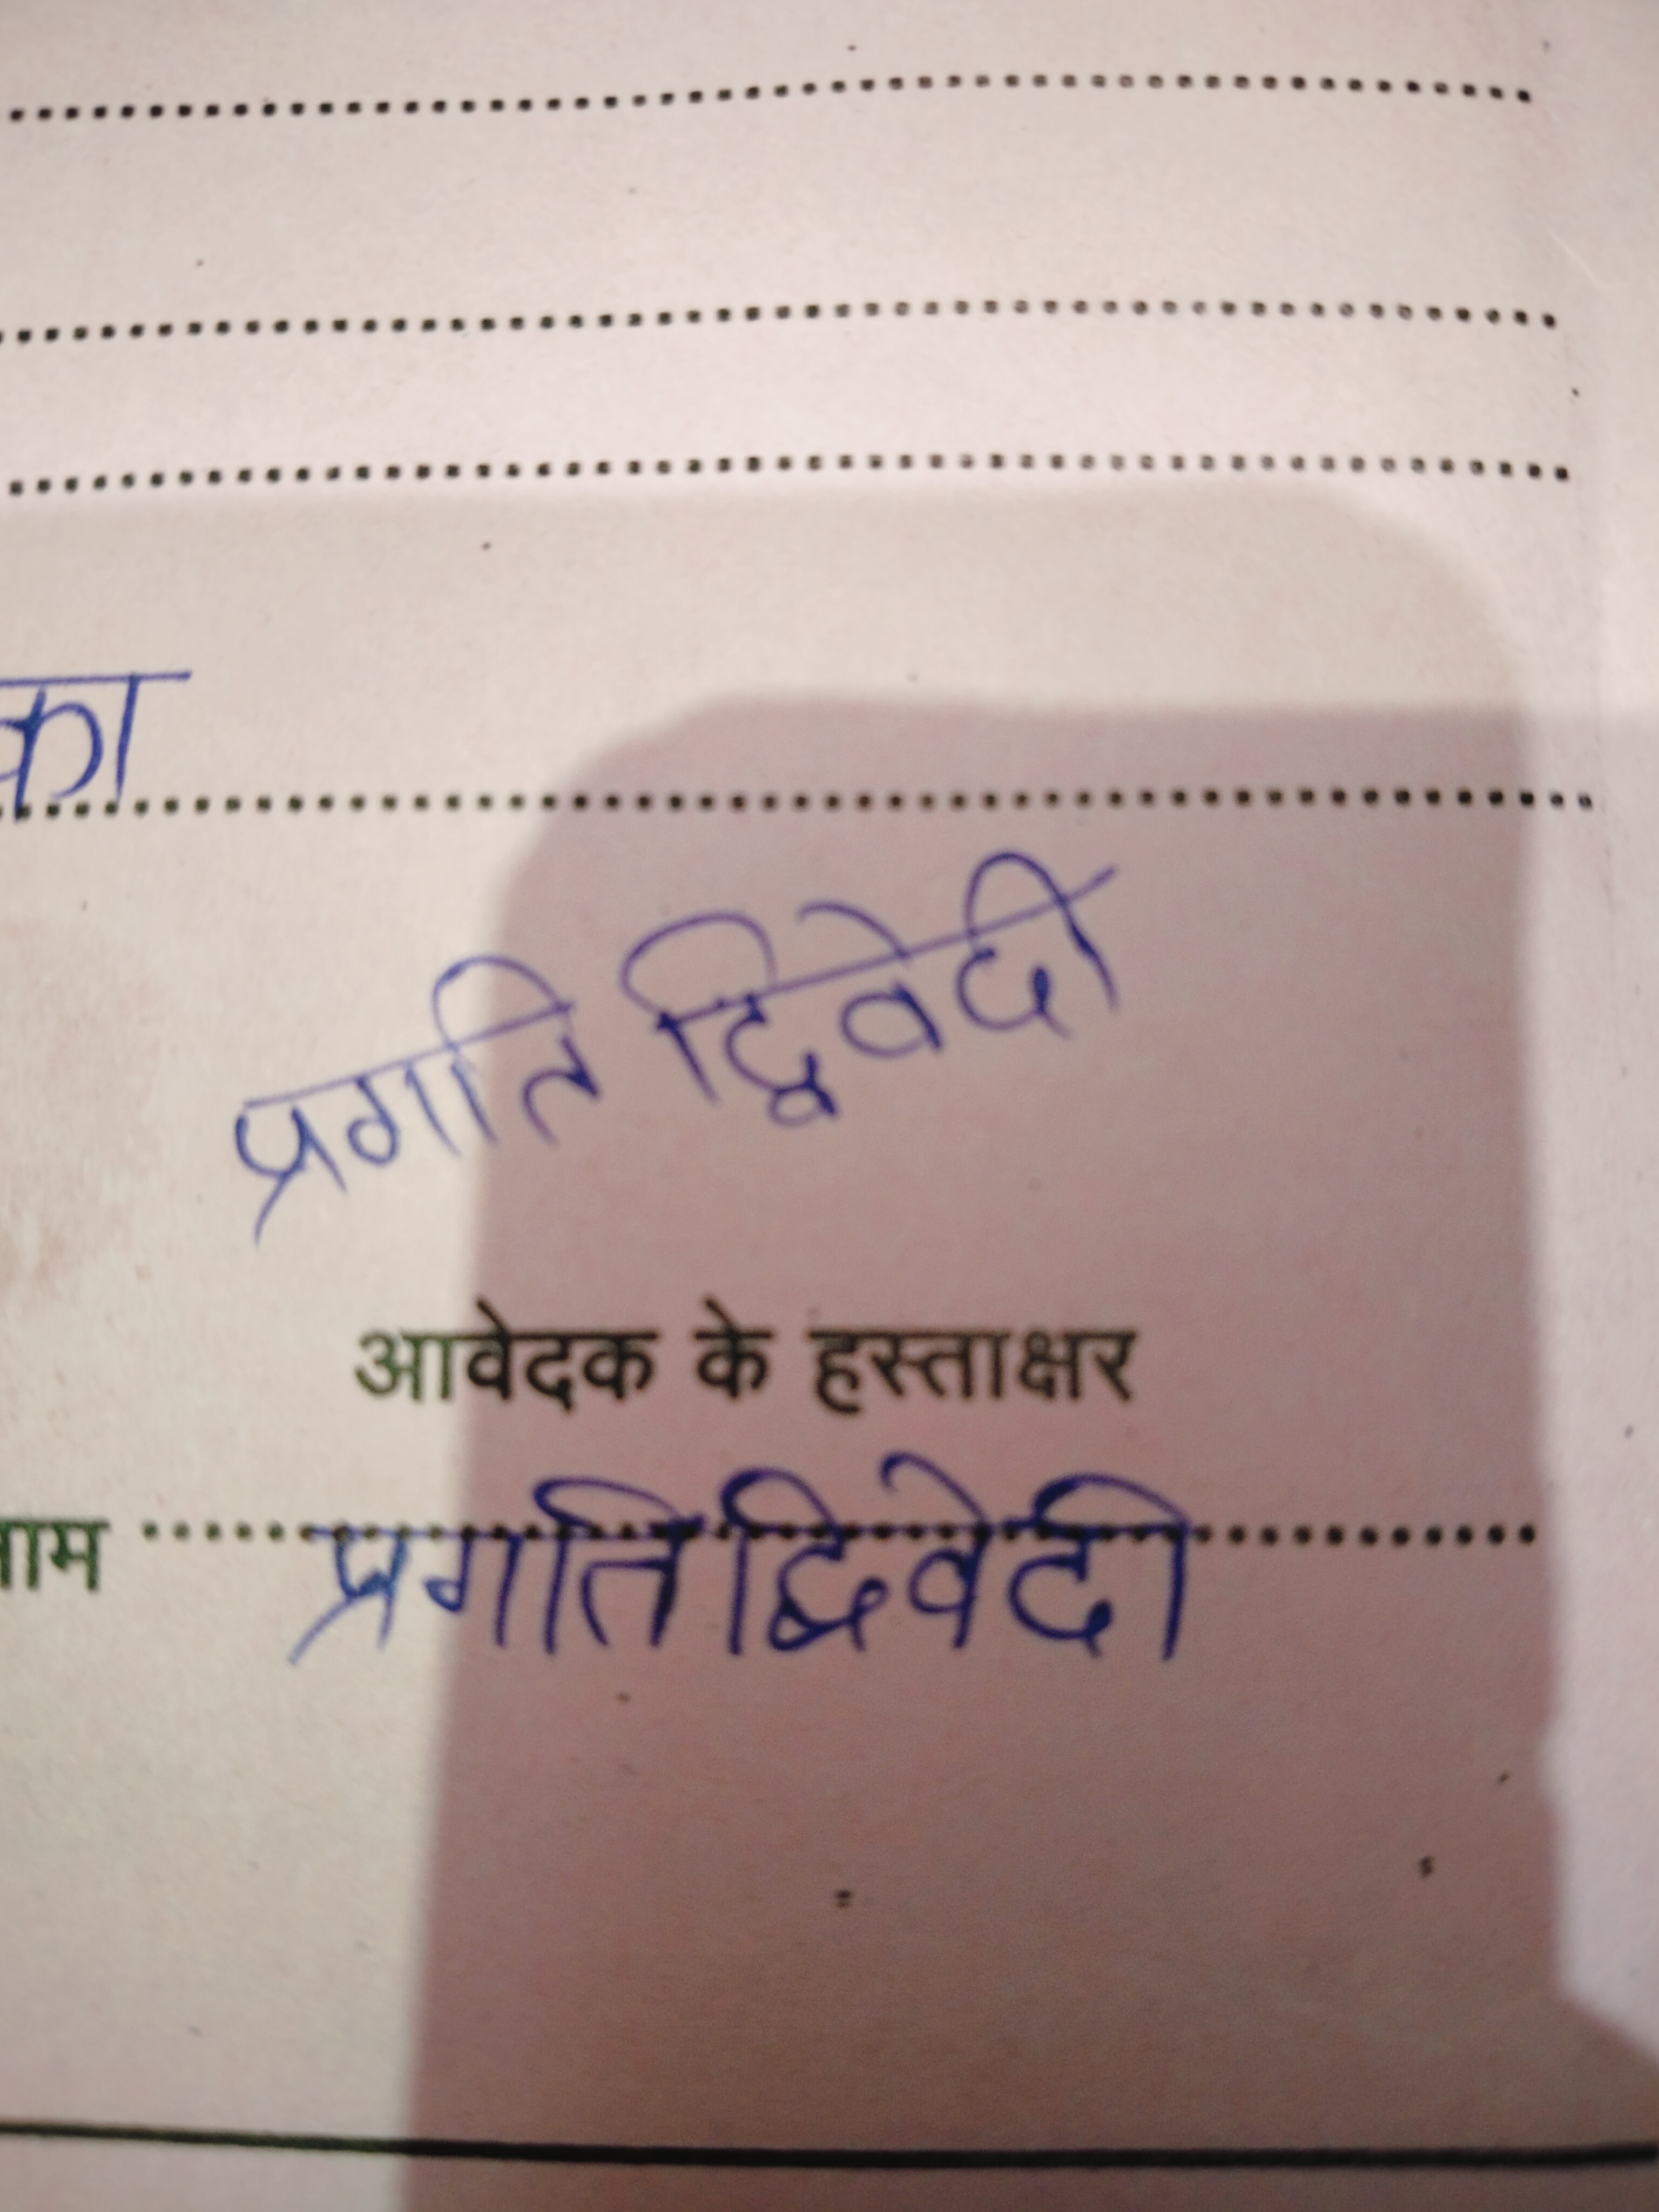 का
प्रगति द्विवेदी
आवेदक के हस्ताक्षर
नाम प्रगति द्विवेदी